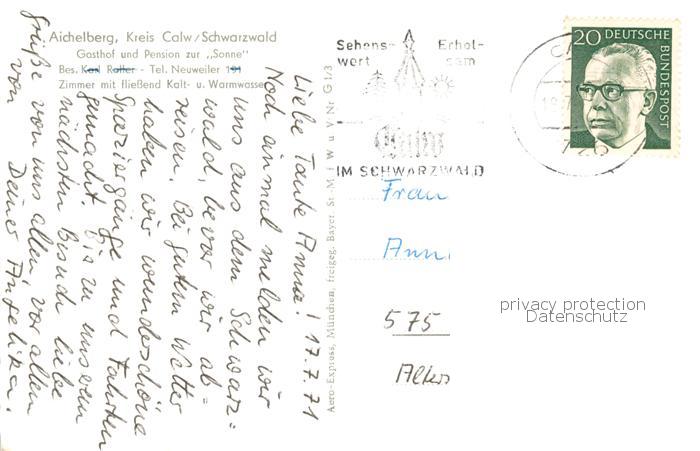 Aichelberg, Kreis Calw/Schwarzwald
Gasthof und Pension zur „Sonne"
Bes. Karl Roller - Tel. Neuweiler 191
Zimmer mit fließend Kalt- u. Warmwasser
Liebe Tante Anna! 17.7.71
Noch einmal melden wir
uns aus dem Schwarz=
wald, bevor wir ab=
reisen. Bei gutem Wetter
haben wir wunderschöne
Spaziergänge und Fahrten
gemacht. Bis zu unserem
nächsten Besuch liebe
Grüße von uns allen, vor allem
von Deiner Angelika.
Aero-Express, München, freigeg. Bayer. St. M f W u V Nr G 1/3
Sehens-
wert
Erhol-
sam
Calw
IM SCHWARZWALD
20 DEUTSCHE
BUNDESPOST
726
Frau
Ann
575
Alten
privacy protection
Datenschutz